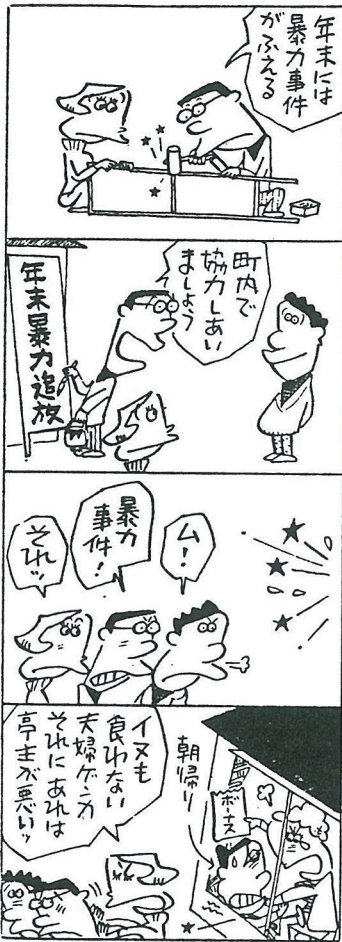 年末には
暴力事件
がふえる
町内で
協力しあい
ましょう
年末暴力追放
ム!
暴力
事件!
それッ
朝帰り
ボーナス
イヌも
食わない
夫婦ゲンカ
それにあれは
亭主が悪いッ